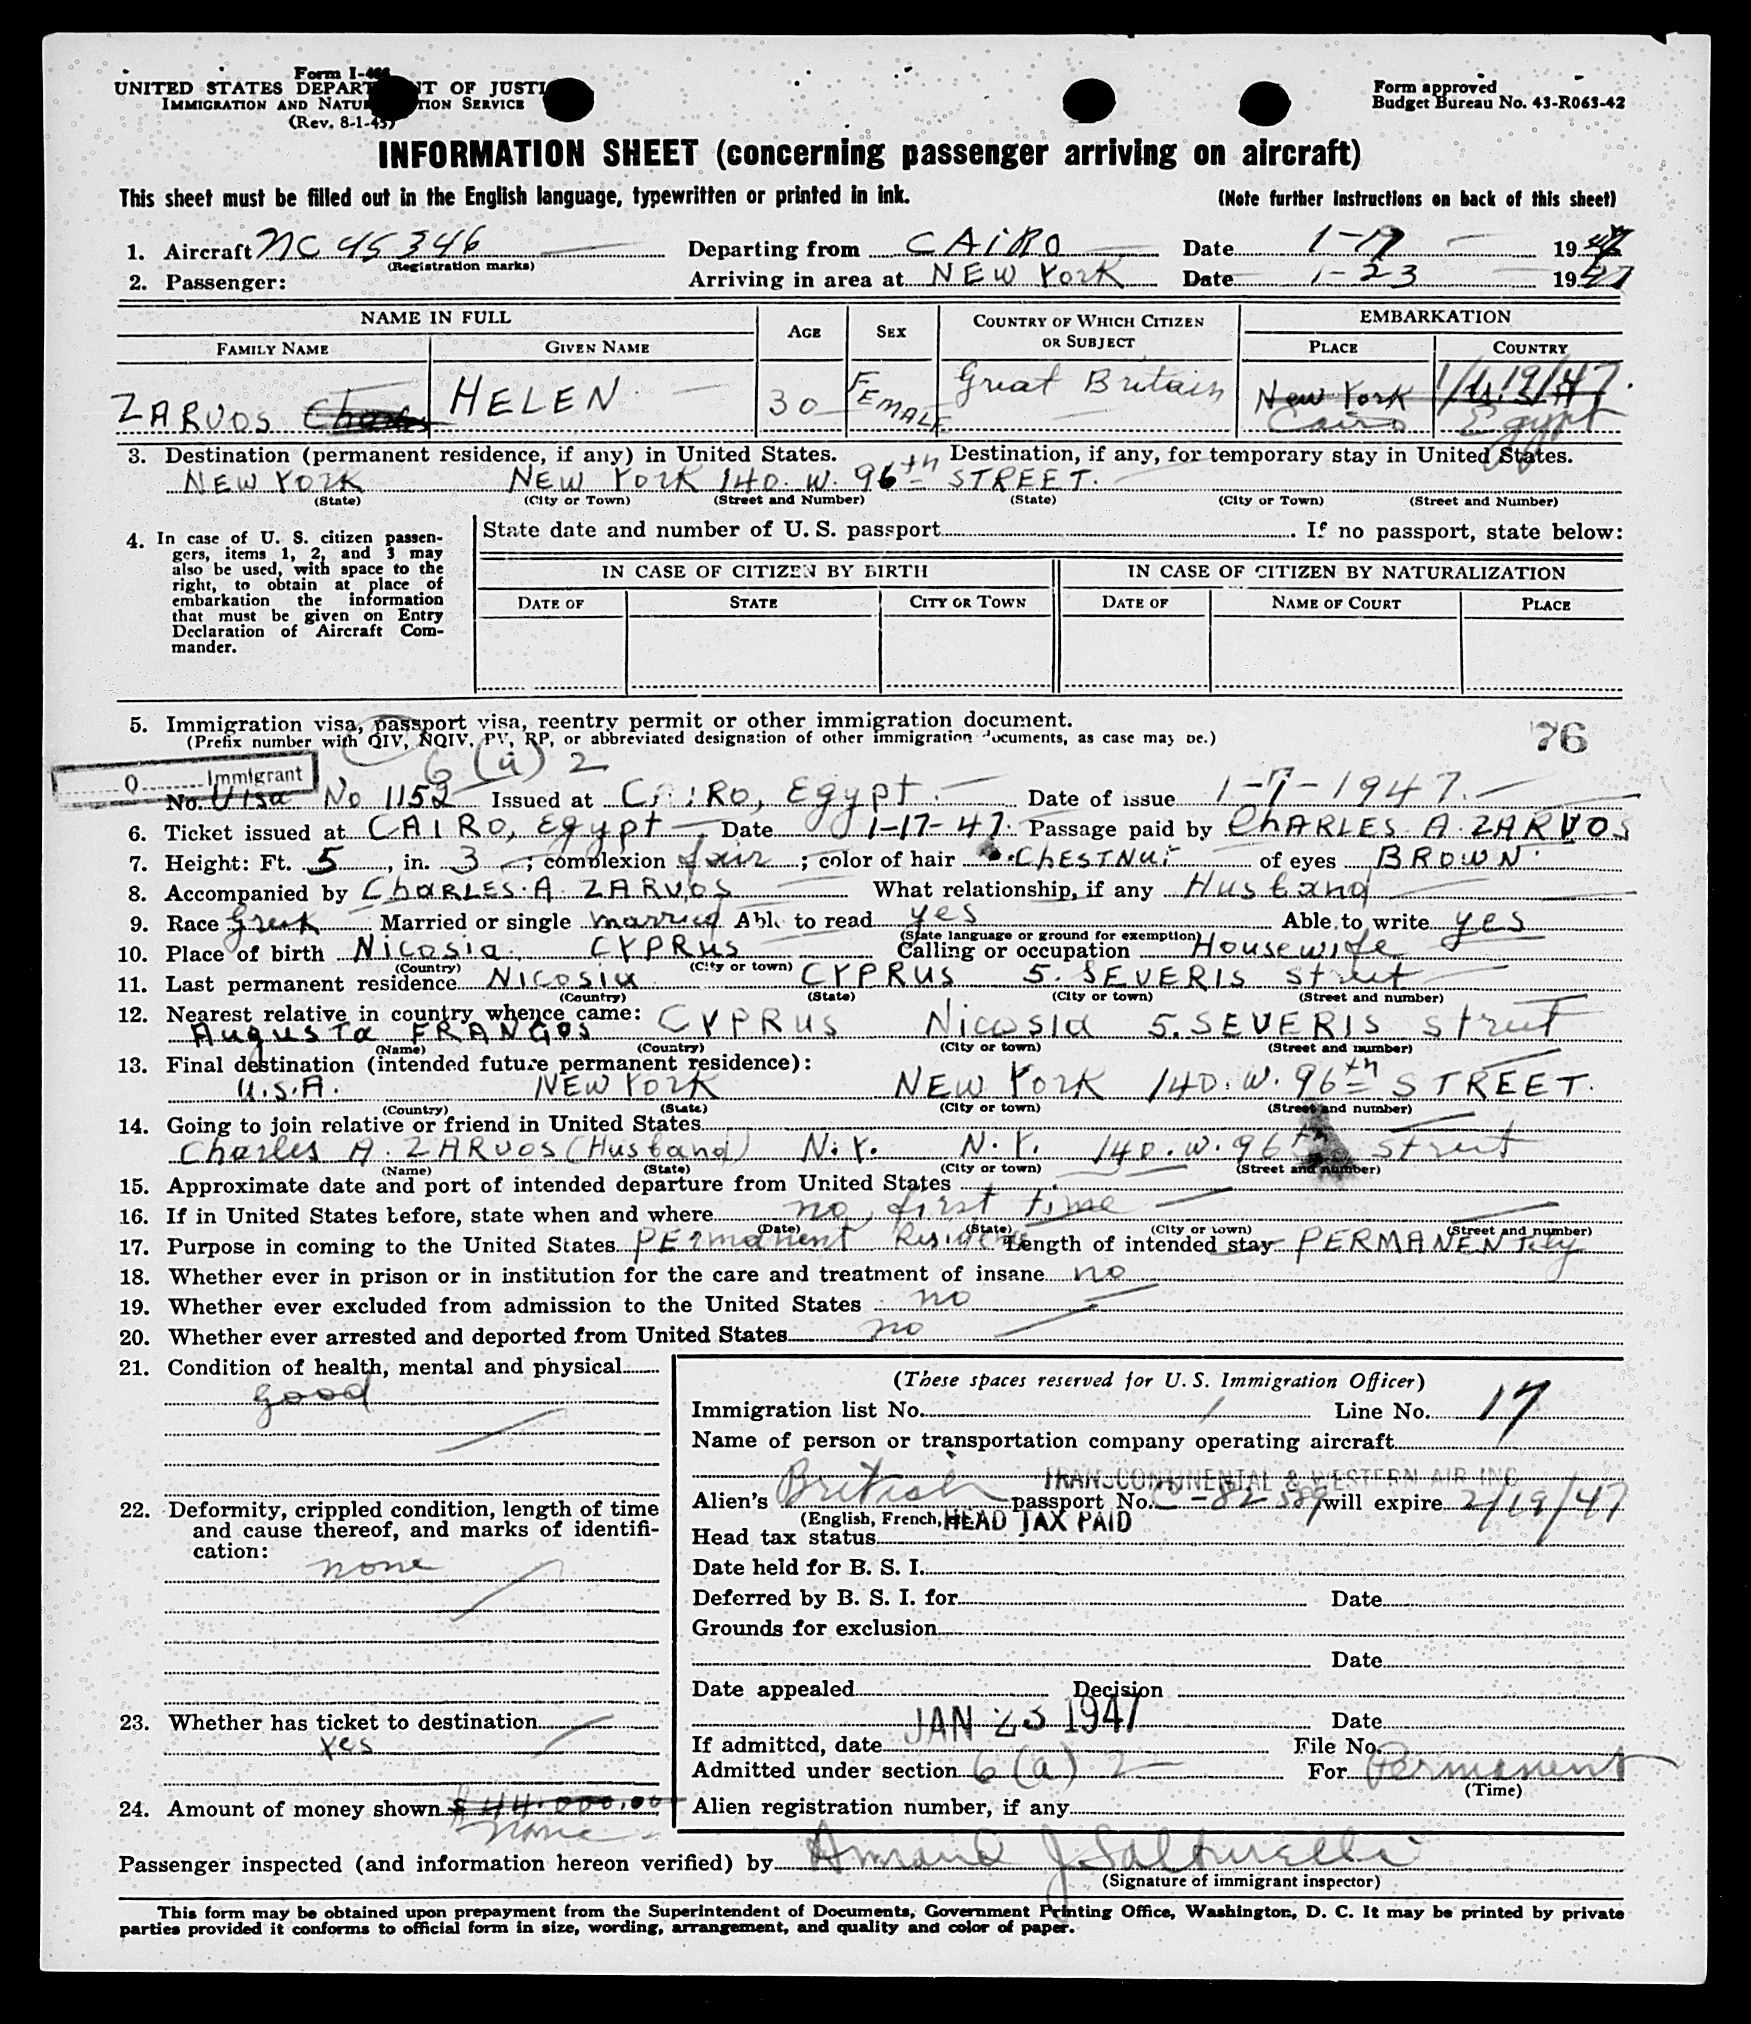 Form I-466
UNITED STATES DEPARTMENT OF JUSTICE
IMMIGRATION AND NATURALIZATION SERVICE
(Rev. 8-1-45)
Form approved
Budget Bureau No. 43-R063-42
INFORMATION SHEET (concerning passenger arriving on aircraft)
This sheet must be filled out in the English language, typewritten or printed in ink. (Note further instructions on back of this sheet)
1. Aircraft NC 45346 Departing from CAIRO Date 1-19 1947
(Registration marks)
2. Passenger: Arriving in area at NEW YORK Date 1-23 1947
NAME IN FULL AGE SEX COUNTRY OF WHICH CITIZEN OR SUBJECT EMBARKATION
FAMILY NAME GIVEN NAME PLACE COUNTRY
ZARVOS HELEN 30 FEMALE Great Britain New York 1/19/47.
Cairo Egypt
3. Destination (permanent residence, if any) in United States. Destination, if any, for temporary stay in United States.
NEW YORK NEW YORK 140. W. 96th STREET.
(State) (City or Town) (Street and Number) (State) (City or Town) (Street and Number)
4. In case of U. S. citizen passen-
gers, items 1, 2, and 3 may
also be used, with space to the
right, to obtain at place of
embarkation the information
that must be given on Entry
Declaration of Aircraft Com-
mander.
State date and number of U. S. passport. If no passport, state below:
IN CASE OF CITIZEN BY BIRTH IN CASE OF CITIZEN BY NATURALIZATION
DATE OF STATE CITY OR TOWN DATE OF NAME OF COURT PLACE
5. Immigration visa, passport visa, reentry permit or other immigration document.
(Prefix number with QIV, NQIV, PV, RP, or abbreviated designation of other immigration documents, as case may be.)
76
6(a) 2
Q Immigrant
No. Visa No 1152 Issued at CAIRO, Egypt. Date of issue 1-7-1947.
6. Ticket issued at CAIRO, Egypt Date 1-17-47. Passage paid by CHARLES A. ZARVOS
7. Height: Ft. 5, in. 3; complexion fair; color of hair CHESTNUT of eyes BROWN.
8. Accompanied by CHARLES. A. ZARVOS What relationship, if any Husband
9. Race Greek Married or single married Able to read yes Able to write yes
(State language or ground for exemption)
10. Place of birth Nicosia. CYPRUS Calling or occupation Housewife
(Country) (City or town)
11. Last permanent residence Nicosia CYPRUS 5. SEVERIS street
(Country) (State) (City or town) (Street and number)
12. Nearest relative in country whence came:
Augusta FRANGOS CYPRUS Nicosia 5. SEVERIS street
(Name) (Country) (City or town) (Street and number)
13. Final destination (intended future permanent residence):
U.S.A. NEW YORK NEW YORK 140. W. 96th STREET.
(Country) (State) (City or town) (Street and number)
14. Going to join relative or friend in United States
Charles A. ZARVOS (Husband) N.Y. N.Y. 140. W. 96th street
(Name) (State) (City or town) (Street and number)
15. Approximate date and port of intended departure from United States
16. If in United States before, state when and where no, first time
(Date) (State) (City or town) (Street and number)
17. Purpose in coming to the United States PErmanent Residence Length of intended stay PERMANENTLY
18. Whether ever in prison or in institution for the care and treatment of insane no
19. Whether ever excluded from admission to the United States no
20. Whether ever arrested and deported from United States no
21. Condition of health, mental and physical
good
22. Deformity, crippled condition, length of time
and cause thereof, and marks of identifi-
cation:
none
23. Whether has ticket to destination
yes
24. Amount of money shown $44.000.00
none
(These spaces reserved for U. S. Immigration Officer)
Immigration list No. 1 Line No. 17
Name of person or transportation company operating aircraft
TRANSCONTINENTAL & WESTERN AIR INC
Alien's British passport No. will expire 2/19/47
(English, French, etc.)
Head tax status HEAD TAX PAID
Date held for B. S. I.
Deferred by B. S. I. for Date
Grounds for exclusion
Date
Date appealed Decision
Date
If admitted, date JAN 23 1947 File No.
Admitted under section 6(a) 2 For Permanent
(Time)
Alien registration number, if any
Passenger inspected (and information hereon verified) by Armand J.
(Signature of immigrant inspector)
This form may be obtained upon prepayment from the Superintendent of Documents, Government Printing Office, Washington, D. C. It may be printed by private
parties provided it conforms to official form in size, wording, arrangement, and quality and color of paper.